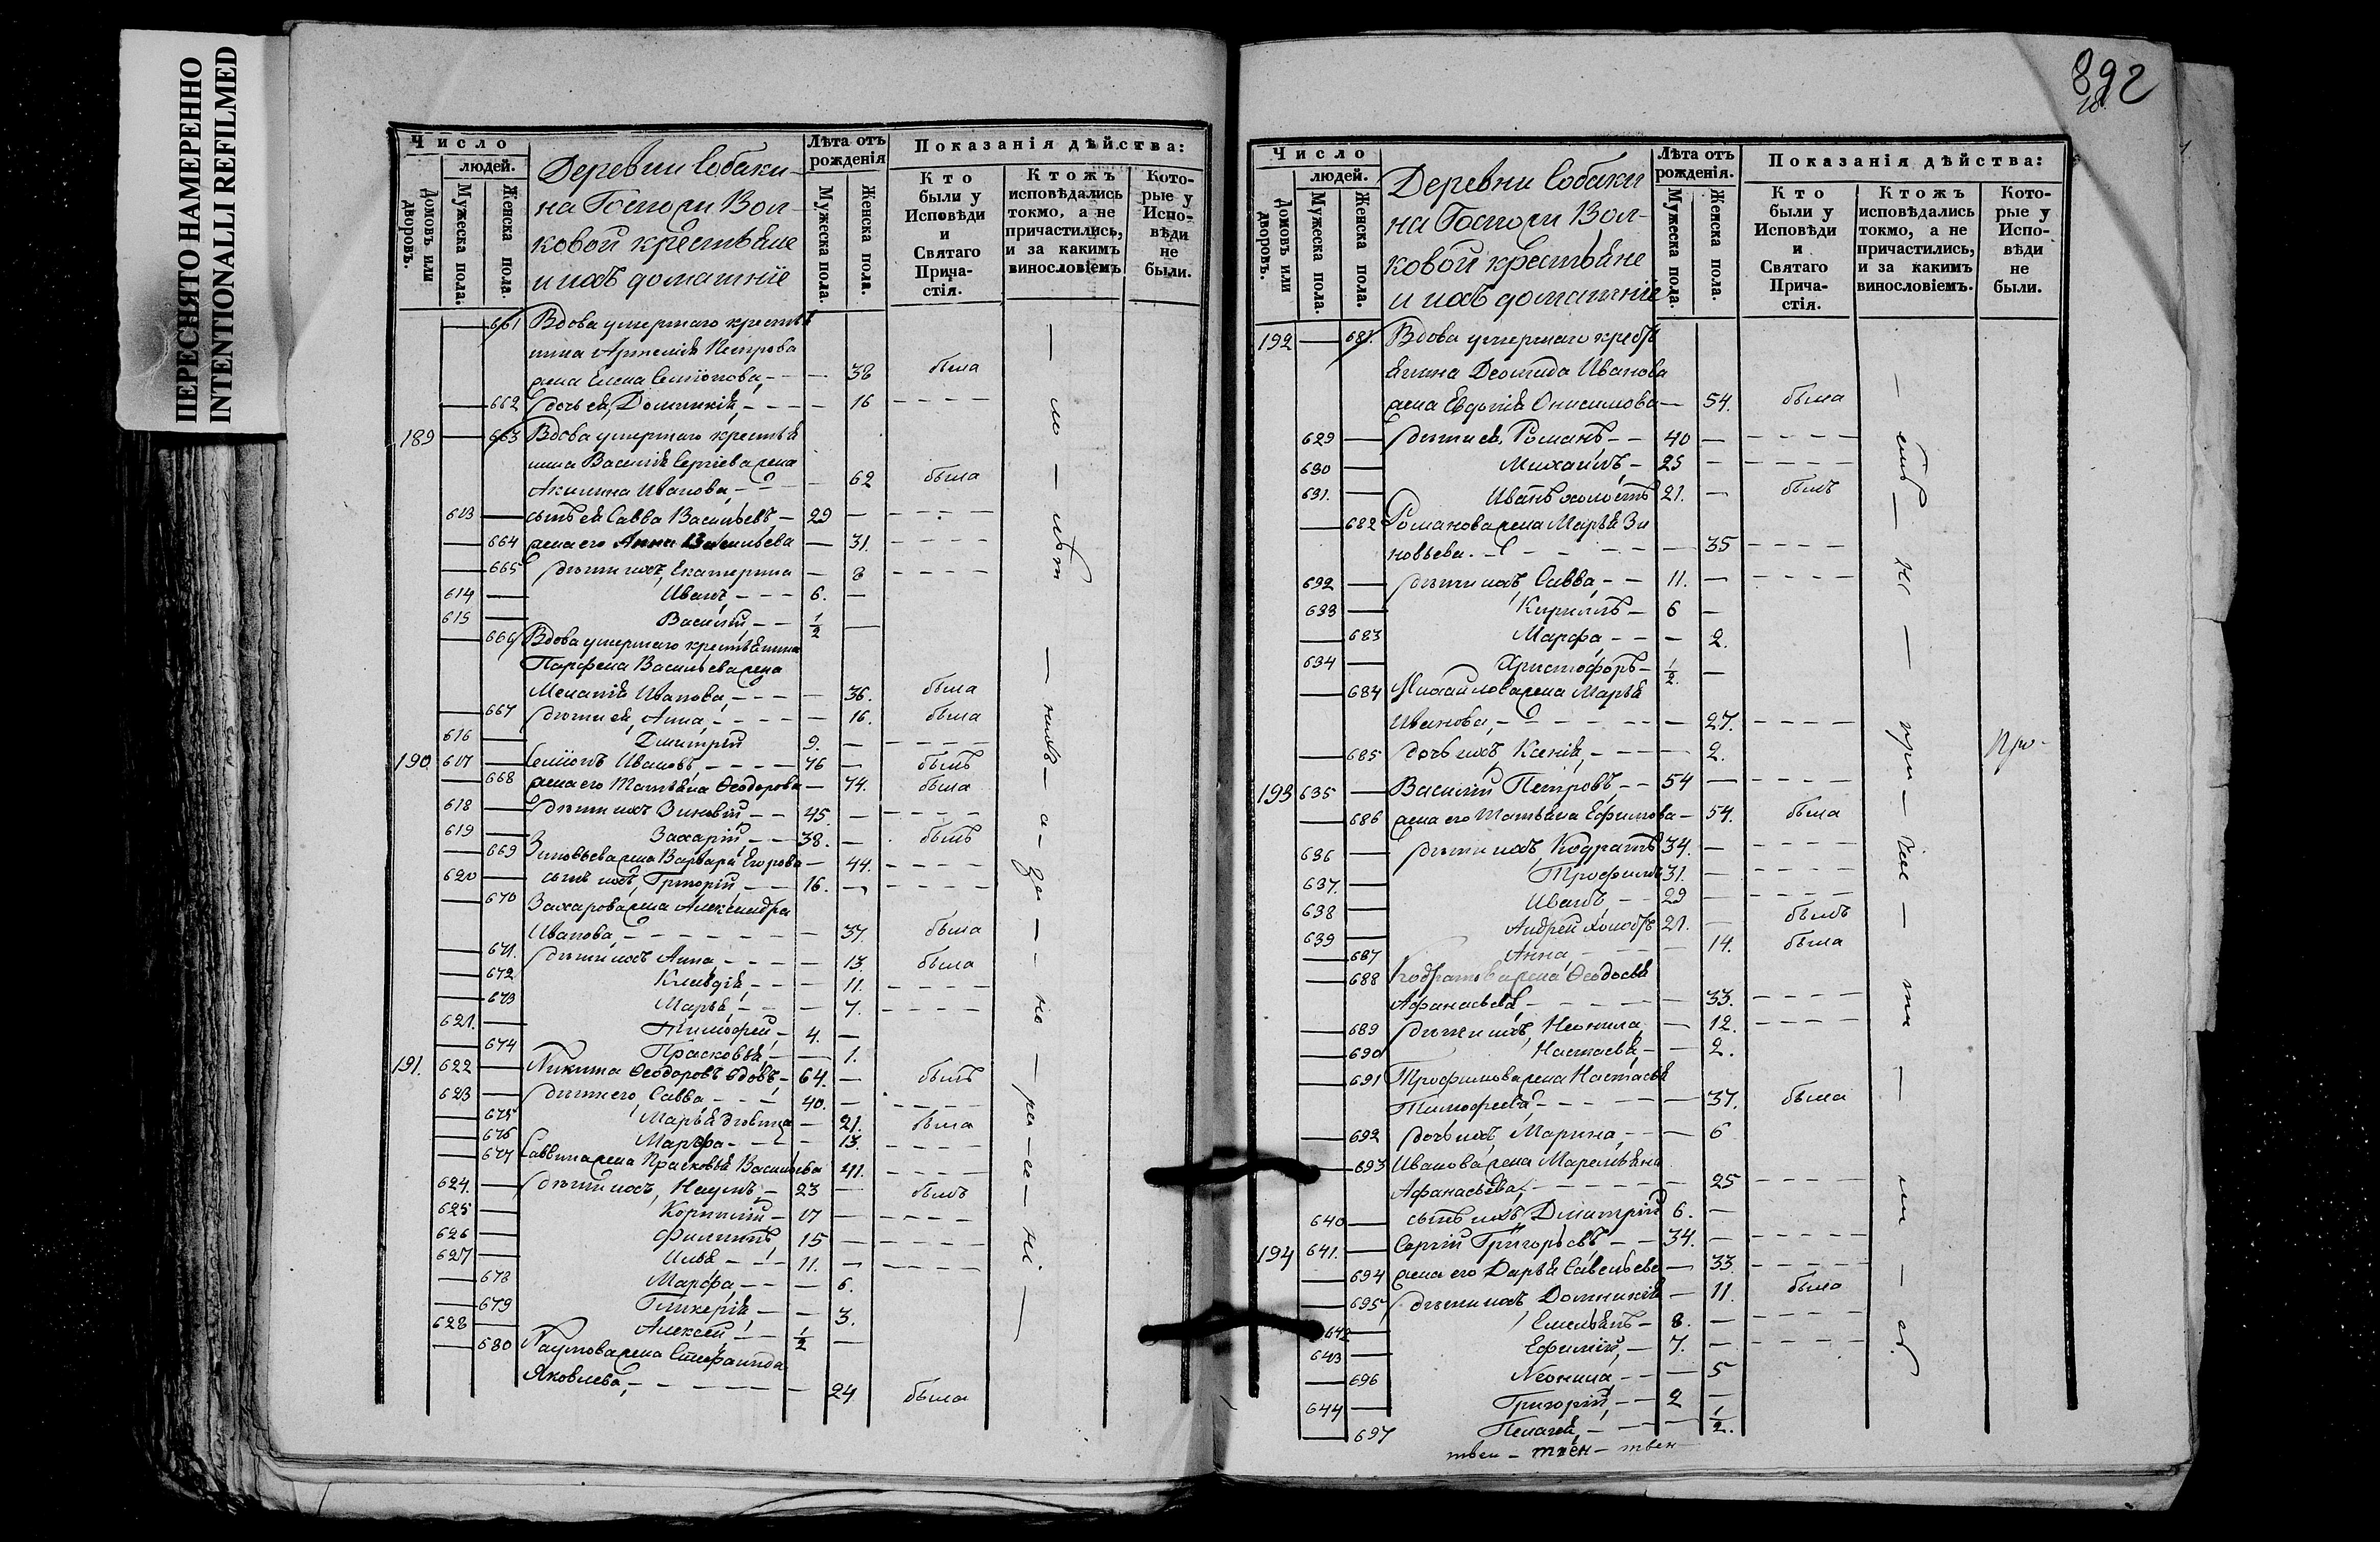 ПЕРЕСНЯТО НАМЕРЕННО
INTENTIONALLI REFILMED
Число
людей.
Домовъ или дворовъ.
Мужеска пола.
Женска пола.
Деревни Собаки-
на Госпожи Вол-
ковой крестьяне
и ихъ домашніе
Лѣта отъ рожденія
Мужеска пола.
Женска пола.
Показанія дѣйства:
Кто были у Исповѣди и Святаго Прича-стія.
Ктожъ исповѣдались токмо, а не причастились, и за какимъ винословіемъ
Кото-рые у Испо-вѣди не были.
661 Вдова умершаго крестья
нина Артемія Петрова
жена Елена Семіонова, — 38 была
662 дочь ея, Домникія, — 16
189 663 Вдова умершаго крестья
нина Василія Сергіева жена
Акилина Иванова, — 62 была
613 сынъ ея Савва Васильевъ, — 29
664 жена его Анна Васильева — 31.
665 дѣти ихъ, Екатерина — 8
614 Иванъ, — 6.
615 Василій, — 1/2
666 Вдова умершаго крестьянина
Парфена Васильева жена
Меланія Иванова, — 36. была
667 дѣти ея, Анна, — 16. была
616 Дмитрій 9.
190. 617 Семіонъ Ивановъ, — 76 былъ
668 жена его Татьяна Ѳеодорова — 74. была
618 дѣти ихъ Зиновій, — 45.
619 Захарій, — 38. былъ
669 Зиновьева жена Варвара Егорова — 44.
620 сынъ ихъ, Григорій, — 16.
670 Захарова жена Александра
Иванова, — 37. была
671. дѣти ихъ Анна, — 13. была
672 Клавдія, — 11.
673 Марья, — 7.
621. Тимофей, — 4.
674 Прасковья, — 1.
191. 622 Никита Ѳеодоровъ вдовъ, — 64. былъ
623 дѣти его Савва — 40.
675 Марья дѣвица — 21. была
676 Марѳа — 13.
677 Саввина жена Прасковья Васильева 41.
624. дѣти ихъ, Наумъ, — 23 былъ
625 Корнилій — 17
626 Филиппъ 15
627 Илья — 11.
678 Марфа, — 6.
679 Гликерія — 3.
628 Алексей — 1/2
680 Наумова жена Стефанида
Яковлева, — 24. была
— ма — лѣт — ними — а — за — — но — ре — че — ни. —
892
Число
людей.
Домовъ или дворовъ.
Мужеска пола.
Женска пола.
Деревни Собаки
на Госпожи Вол-
ковой крестьяне
и ихъ домашніе
Лѣта отъ рожденія.
Мужеска пола.
Женска пола.
Показанія дѣйства:
Кто были у Исповѣди и Святаго Прича-стія.
Ктожъ исповѣдались токмо, а не причастились, и за какимъ винословіемъ.
Кото-рые у Испо-вѣди не были.
192 681. Вдова умершаго крестъ
янина Леонида Иванова
жена Евдокія Онисимова — 54. была
629 дѣти ея, Романъ — 40
630 Михаилъ, — 25
631. Иванъ холостъ 21. былъ
682 Романова жена Марья Зи
новьева. — 35
692 дѣти ихъ, Савва, — 11.
633 Кириллъ — 6
683 Марфа, — 2.
634 Христофоръ — 1/2.
684 Михайлова жена Марья
Иванова, — 27.
685 дочь ихъ, Ксенія, — 2.
193 635 Василій Петровъ, — 54
686 жена его Татьяна Ефимова — 54. была
636 дѣти ихъ, Кодратъ 34.
637. Трофимъ 31.
638 Иванъ, — 29
639 Андрей холостъ 21. былъ
687 Анна, — 14. была
688 Кодратова жена Ѳеодосья
Афанасьева, — 33.
689 дѣти ихъ, Неонила, — 12.
690 Настасья, — 2.
691 Трофимова жена Настасья
Тимофеева, — 37. была
692 дочь ихъ, Марина, — 6
693 Иванова жена Маремьяна
Афанасьева, — 25
640 сынъ ихъ Дмитрій 6.
194 641. Сергій Григорьевъ — 34.
694 жена его Дарья Савельева — 33.
695 дѣти ихъ Домникія — 11. была
642 Емельянъ — 8.
643 Ефимій, — 7.
696 Неонила, — 5
644 Григорій, — 2
697 Пелагея, — 1/2.
Про-
твен — твен — твен